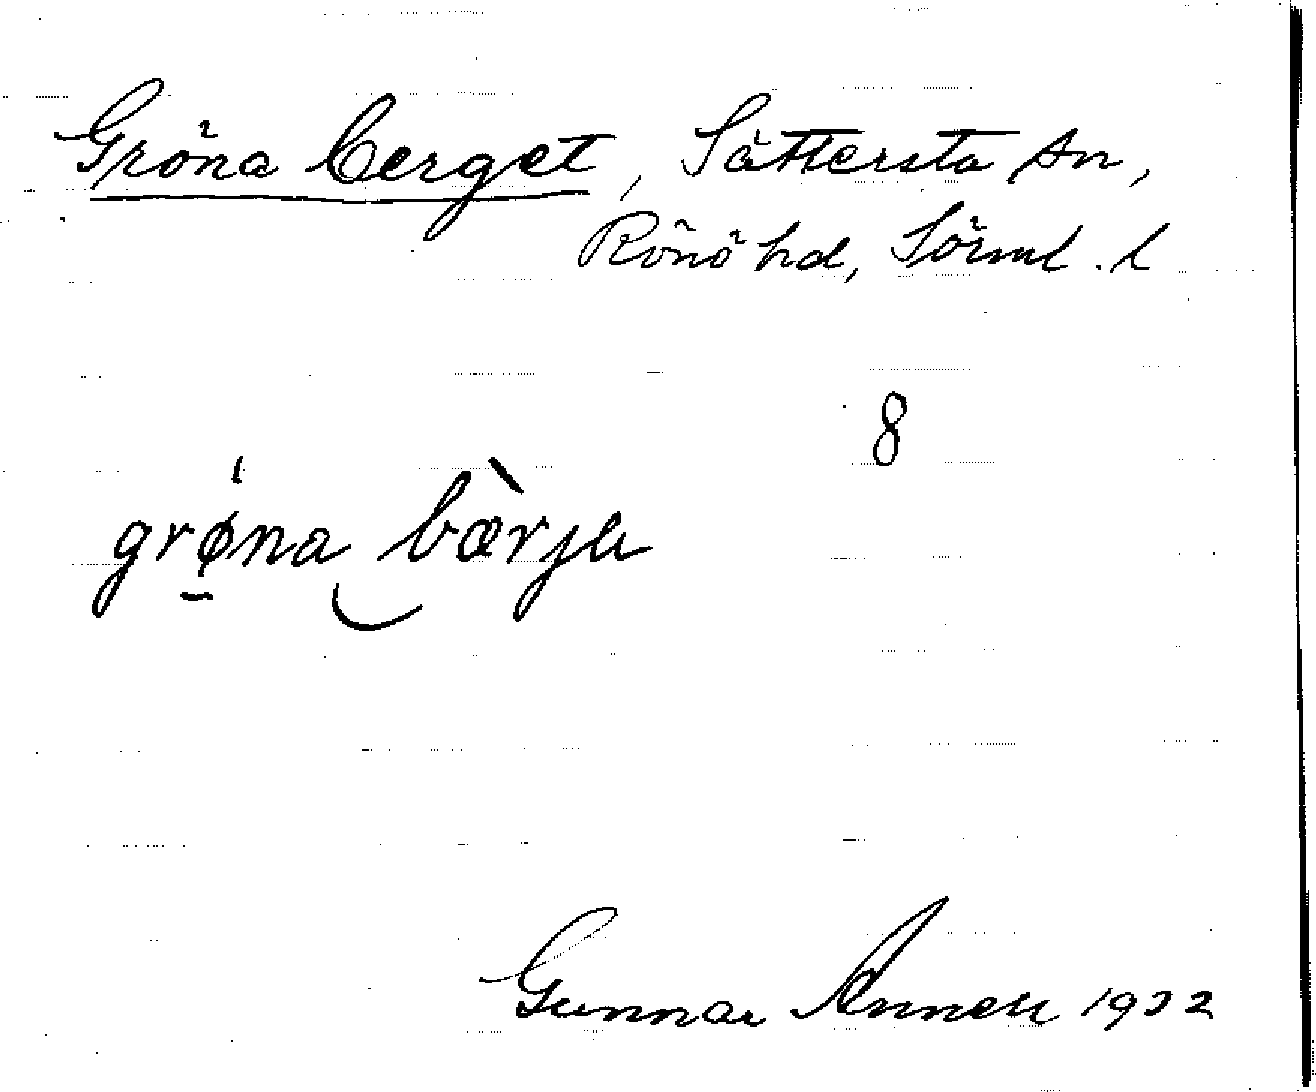 Gröna berget, Sättersta sn,
Rönö hd, Sörml. l
8
grøna bærje
Gunnar Annell 1932